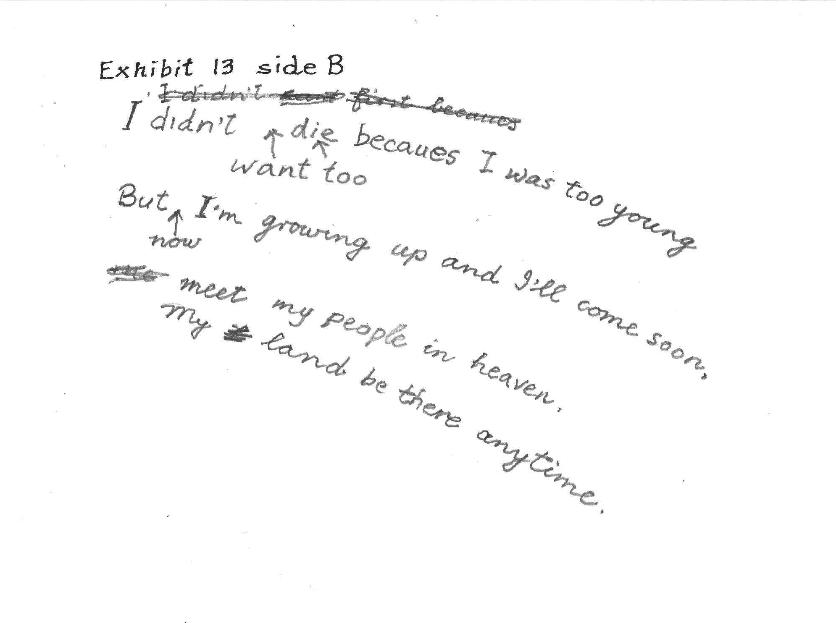 Exhibit 13 side B
I didn't first becaues
I didn't die becaues I was too young
want too
But I'm growing up and I'll come soon,
now
meet my people in heaven.
My land be there anytime.